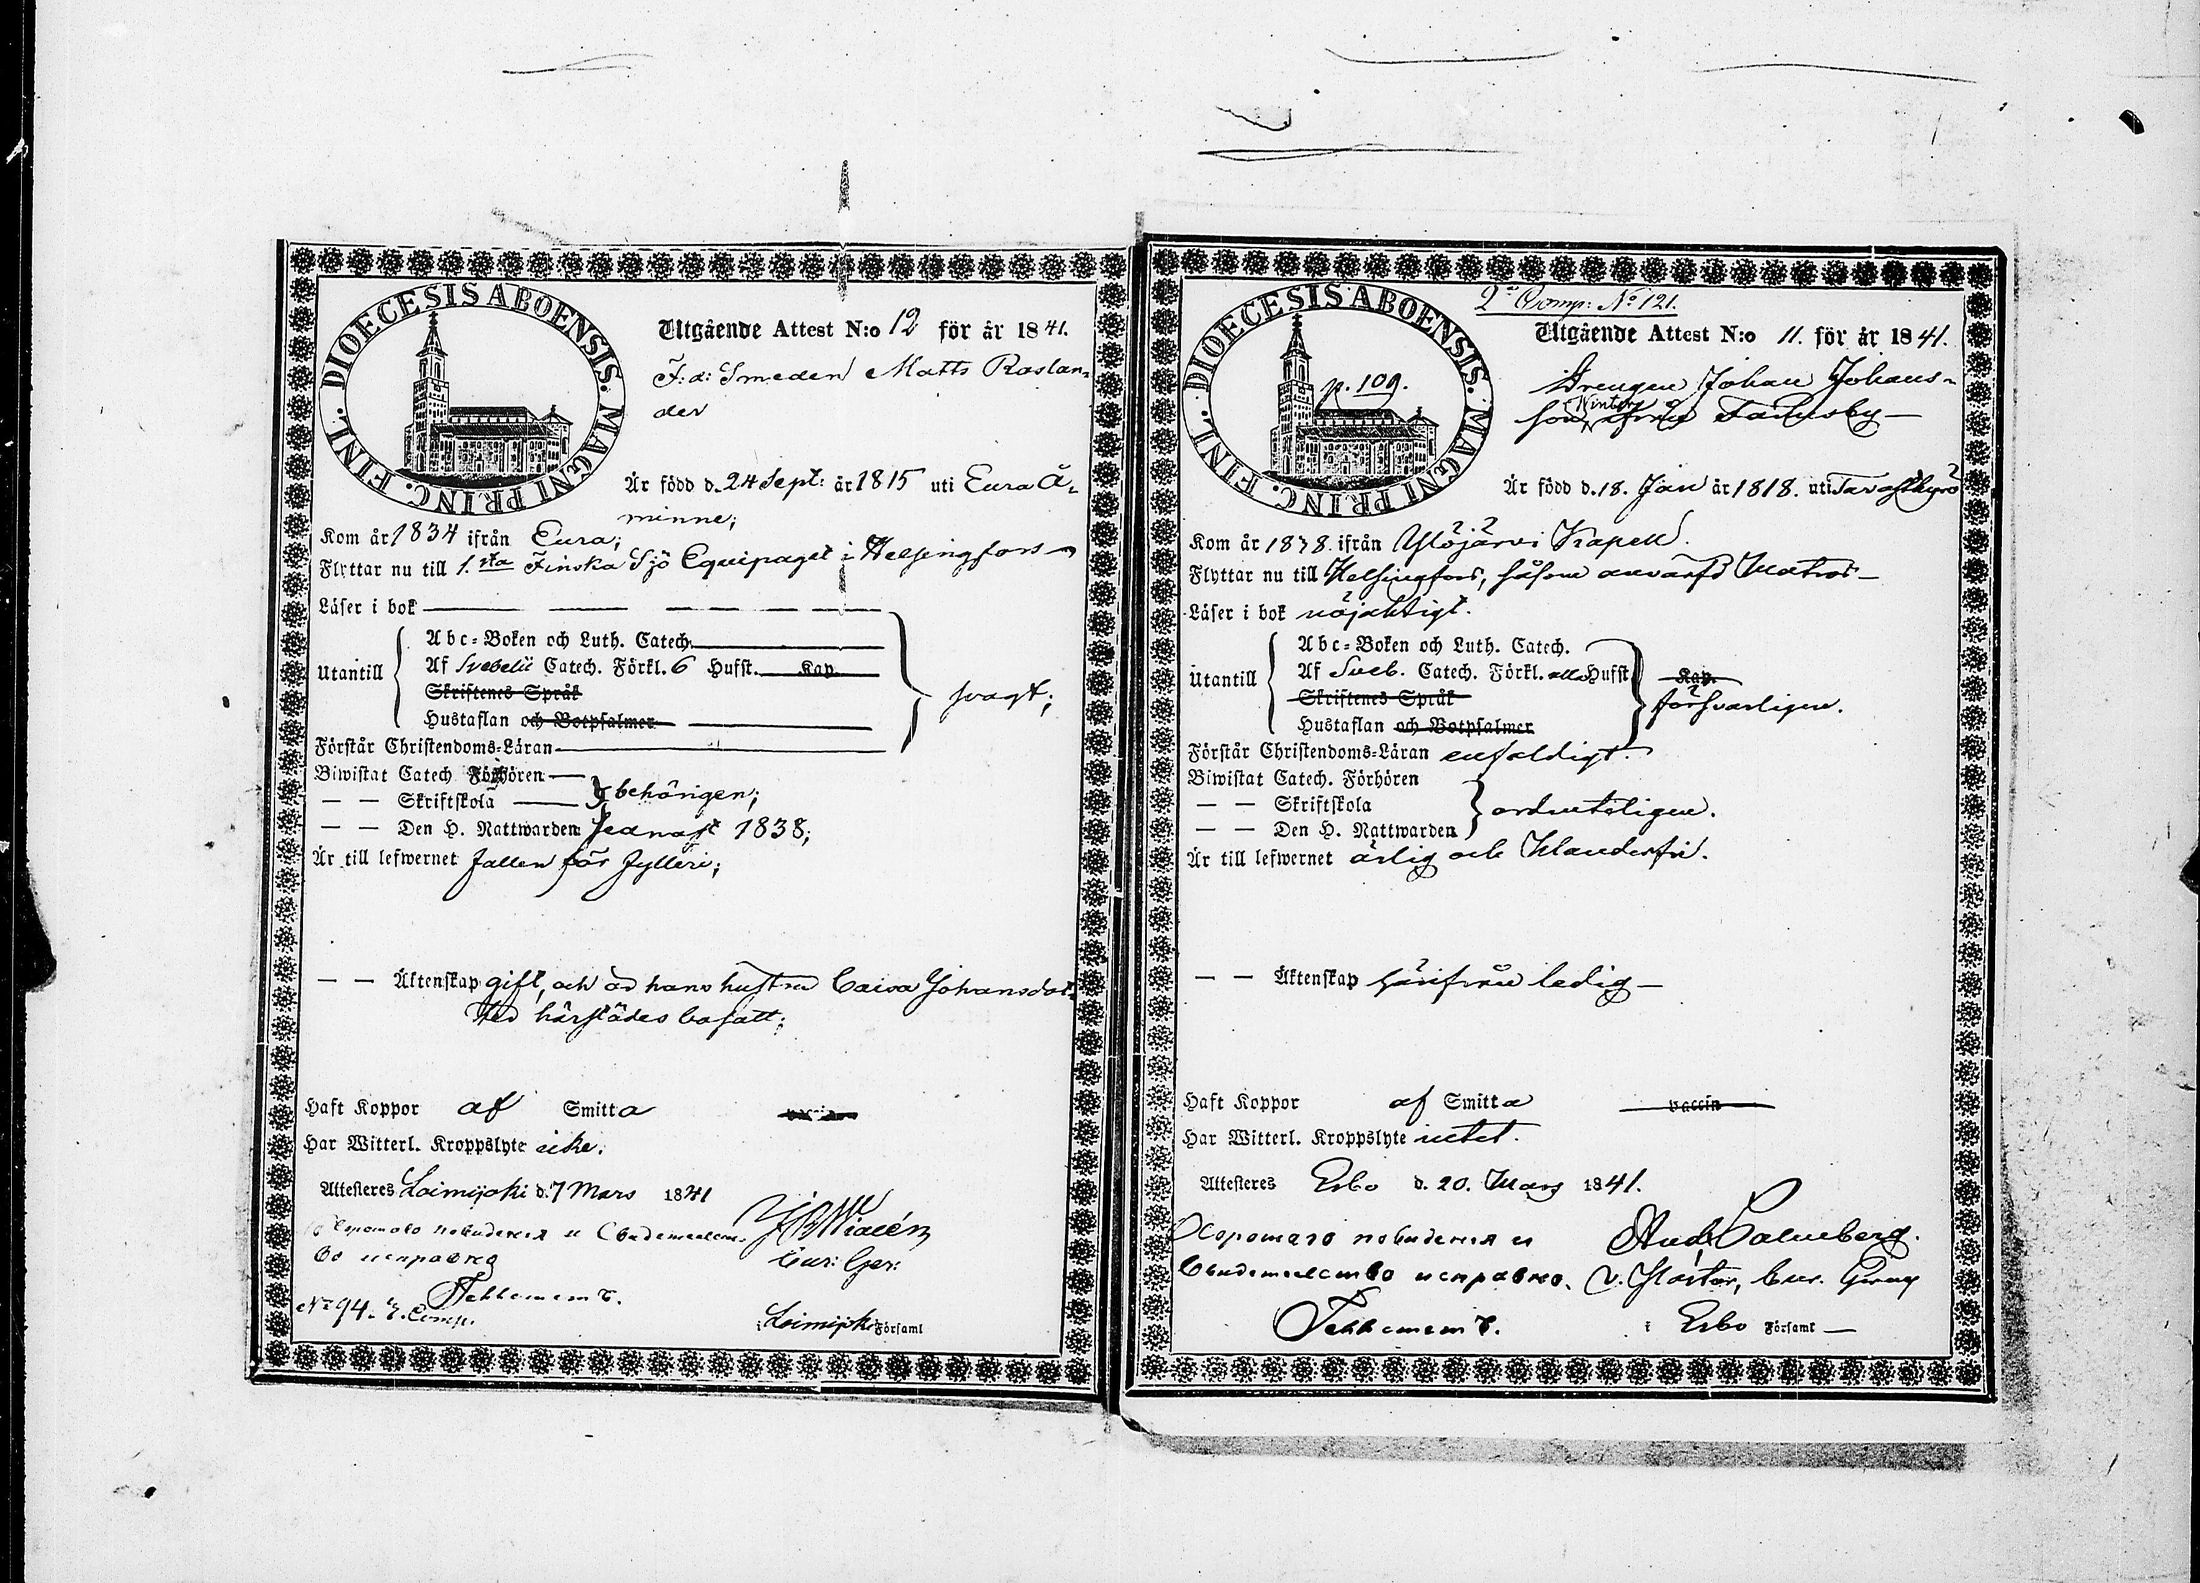 DIOECESIS ABOENSIS. MAGNI PRINC. FINL.
Utgående Attest N:o 12 för år 1841.
F: d: Smeden Matts Roslan-
der
Är född d. 24 Sept: år 1815 uti Eura Å-
minne;
Kom år 1834 ifrån Eura;
Flyttar nu till 1.sta Finska Sjö Equipaget i Helsingfors
Läser i bok
Utantill
Abc-Boken och Luth. Catech.
Af Svebelii Catech. Förkl. 6 Hufst. Kap.
Skriftenes Språk
Hustaflan och Botpsalmer
svagt;
Förstår Christendoms-Läran
Biwistat Catech Förhören
— — Skriftskola
behörigen;
— — Den H. Nattwarden sednast 1838;
Är till lefwernet fallen för fylleri;
— — Äktenskap gift, och är hans hustru Caisa Johansdot-
ter härstädes bosatt;
Haft Koppor af Smitta vaccin
Har Witterl. Kroppslyte icke;
Attesteres Loimijoki d. 7 Mars 1841
Хорошаго поведения и Свидетельст-
во исправно
N:o 94. 2. Comp.
i Loimijoki Församl
DIOECESIS ABOENSIS. MAGNI PRINC. FINL.
p. 109.
2a Comp: No 121.
Utgående Attest N:o 11. för år 1841.
Drengen Johan Johans-
son Winter ifrån
Är född d. 18. Jan år 1818. uti Tavastkyrö
Kom år 1838. ifrån Ylöjärvi Kapell.
Flyttar nu till Helsingfors, såsom anvärfd Matros —
Läser i bok nöjaktigt.
Utantill
Abc-Boken och Luth. Catech.
Af Sveb. Catech. Förkl. alla Hufst. Kap.
Skriftenes Språk
Hustaflan och Botpsalmer
försvarligen.
Förstår Christendoms-Läran enfaldigt.
Biwistat Catech. Förhören
— — Skriftskola
— — Den H. Nattwarden
ordenteligen.
Är till lefwernet ärlig och klanderfri.
— — Äktenskap härifrån ledig —
Haft Koppor af Smitta vaccin
Har Witterl. Kroppslyte intet.
Attesteres Esbo d. 20. Mars 1841.
Хорошаго поведения и
Свидетельство исправно.
i Esbo Församl —